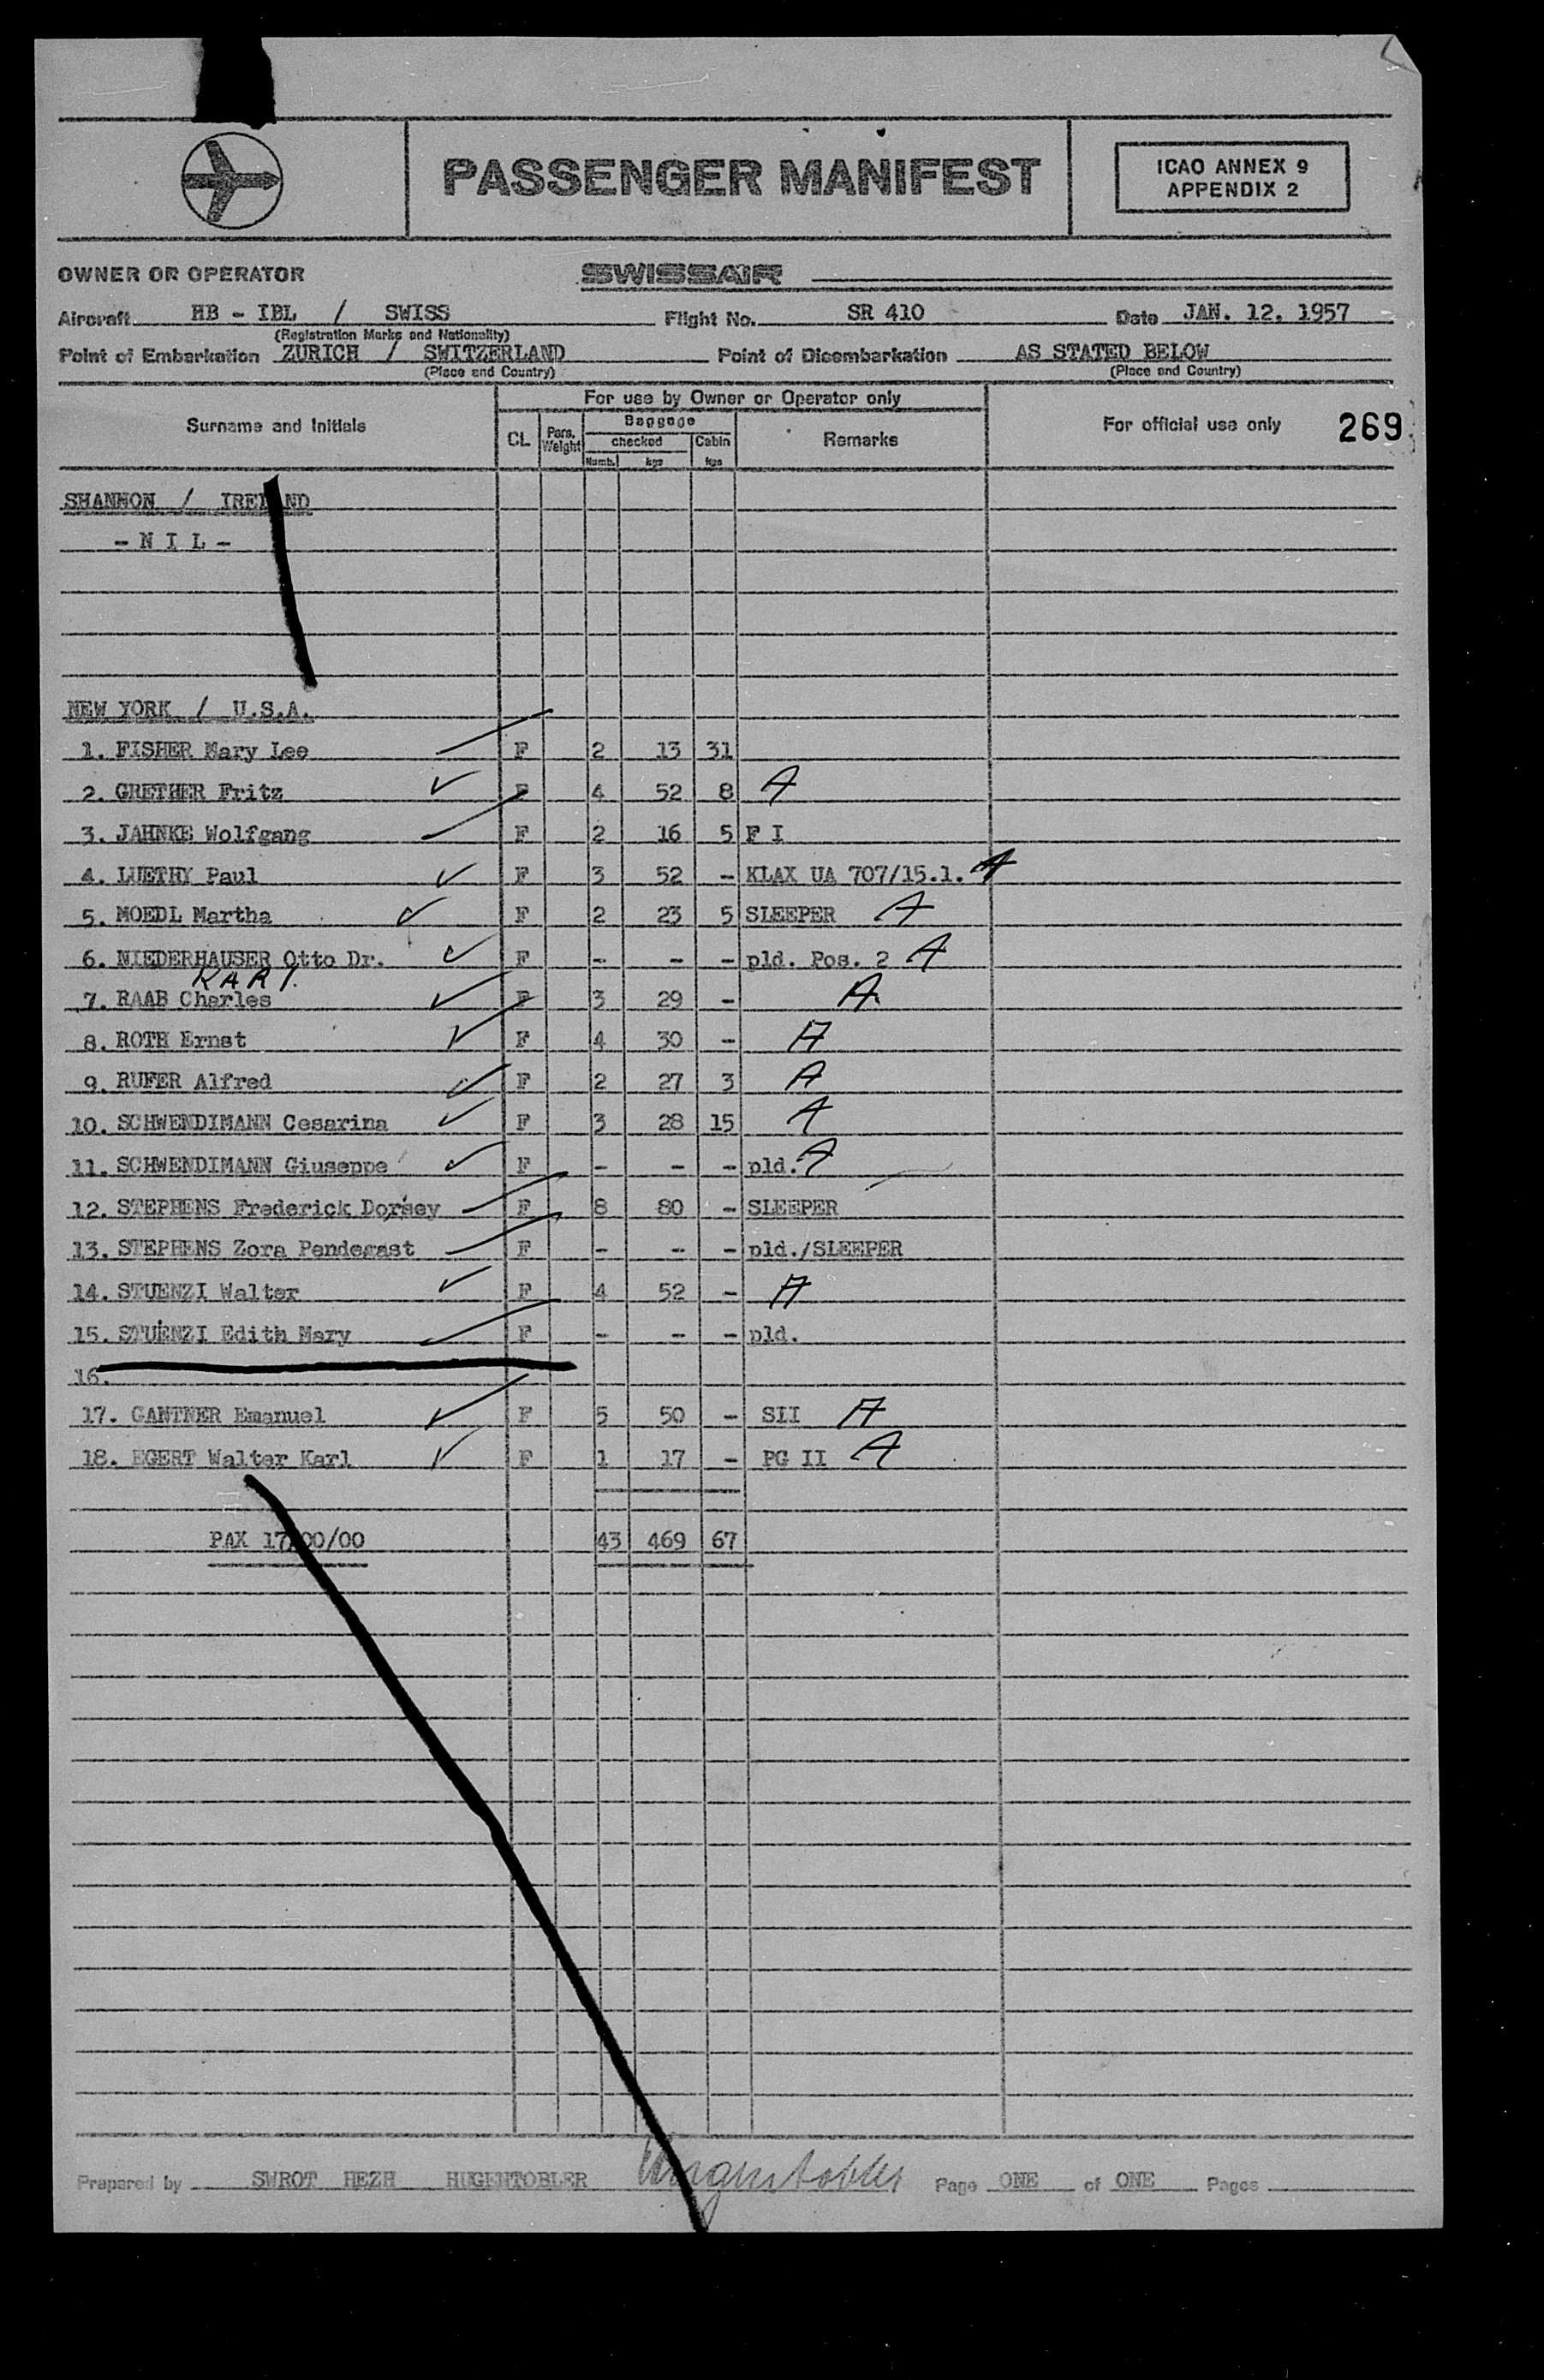 PASSENGER MANIFEST
ICAO ANNEX 9
APPENDIX 2
OWNER OR OPERATOR SWISSAIR
Aircraft HB - IBL / SWISS Flight No. SR 410 Date JAN. 12. 1957
(Registration Marks and Nationality)
Point of Embarkation ZURICH / SWITZERLAND Point of Disembarkation AS STATED BELOW
(Place and Country) (Place and Country)
For use by Owner or Operator only
Surname and Initials CL Pers. Weight Baggage checked Numb. kgs Cabin kgs Remarks For official use only 269
SHANNON / IRELAND
- N I L -
NEW YORK / U.S.A.
1. FISHER Mary Lee F 2 13 31
2. GRETHER Fritz F 4 52 8 A
3. JAHNKE Wolfgang F 2 16 5 F I
4. LUETHY Paul F 3 52 - KLAX UA 707/15.1. A
5. MOEDL Martha F 2 23 5 SLEEPER A
6. NIEDERHAUSER Otto Dr. F - - - pld. Pos. 2 A
KARL
7. RAAB Charles F 3 29 - A
8. ROTH Ernst F 4 30 - A
9. RUFER Alfred F 2 27 3 A
10. SCHWENDIMANN Cesarina F 3 28 15 A
11. SCHWENDIMANN Giuseppe F - - - pld. A
12. STEPHENS Frederick Dorsey F 8 80 - SLEEPER
13. STEPHENS Zora Pendegast F - - - pld./SLEEPER
14. STUENZI Walter F 4 52 - A
15. STUENZI Edith Mary F - - - pld.
16.
17. GANTNER Emanuel F 5 50 - SII A
18. EGERT Walter Karl F 1 17 - PG II A
PAX 17/00/00 43 469 67
Prepared by SWROT HEZH HUGENTOBLER Hugentobler Page ONE of ONE Pages